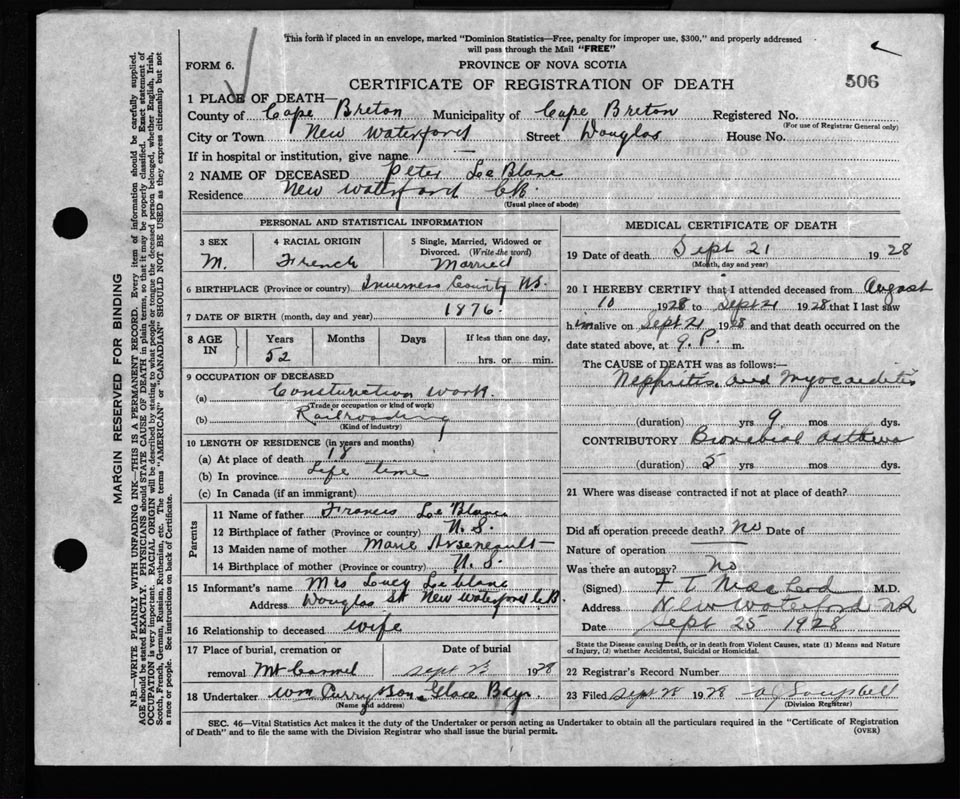 This form if placed in an envelope, marked "Dominion Statistics—Free, penalty for improper use, $300," and properly addressed
will pass through the Mail "FREE"
FORM 6.
PROVINCE OF NOVA SCOTIA
CERTIFICATE OF REGISTRATION OF DEATH
506
1 PLACE OF DEATH—
County of Cape Breton Municipality of Cape Breton Registered No.
(For use of Registrar General only)
City or Town New Waterford Street Douglas House No.
If in hospital or institution, give name —
2 NAME OF DECEASED Peter Le Blanc
Residence New Waterford C.B.
(Usual place of abode)
PERSONAL AND STATISTICAL INFORMATION
3 SEX 4 RACIAL ORIGIN 5 Single, Married, Widowed or
Divorced. (Write the word)
M. French Married
6 BIRTHPLACE (Province or country) Inverness County N.S.
7 DATE OF BIRTH (month, day and year) 1876.
8 AGE IN Years Months Days If less than one day,
52 hrs. or min.
9 OCCUPATION OF DECEASED
(a) Construction work.
(Trade or occupation or kind of work)
(b) Railroading
(Kind of industry)
10 LENGTH OF RESIDENCE (in years and months)
(a) At place of death 18
(b) In province Life time
(c) In Canada (if an immigrant)
Parents
11 Name of father Francis Le Blanc
12 Birthplace of father (Province or country) N. S.
13 Maiden name of mother Marie Arseneault
14 Birthplace of mother (Province or country) N. S.
15 Informant's name Mrs Lucy Leblanc
Address Douglas St New Waterford C.B.
16 Relationship to deceased wife
17 Place of burial, cremation or Date of burial
removal Mt Carmel Sept 23 1928
18 Undertaker Wm Curry Son Glace Bay.
(Name and address)
MEDICAL CERTIFICATE OF DEATH
19 Date of death Sept 21 1928
(Month, day and year)
20 I HEREBY CERTIFY that I attended deceased from August
10 1928 to Sept 21 1928 that I last saw
him alive on Sept 21 1928 and that death occurred on the
date stated above, at 9. P. m.
The CAUSE of DEATH was as follows:—
Nephritis and Myocarditis
(duration) yrs 9 mos dys.
CONTRIBUTORY Bronchial Asthma
(duration) 5 yrs mos dys.
21 Where was disease contracted if not at place of death?
Did an operation precede death? No Date of
Nature of operation
Was there an autopsy? No
(Signed) F T MacLeod M.D.
Address New Waterford NS
Date Sept 25 1928
State the Disease causing Death, or in death from Violent Causes, state (1) Means and Nature
of Injury, (2) whether Accidental, Suicidal or Homicidal.
22 Registrar's Record Number
23 Filed Sept 28 1928
(Division Registrar)
SEC. 46—Vital Statistics Act makes it the duty of the Undertaker or person acting as Undertaker to obtain all the particulars required in the "Certificate of Registration
of Death" and to file the same with the Division Registrar who shall issue the burial permit. (OVER)
MARGIN RESERVED FOR BINDING
N.B.—WRITE PLAINLY WITH UNFADING INK—THIS IS A PERMANENT RECORD. Every item of information should be carefully supplied.
AGE should be stated EXACTLY. PHYSICIANS should STATE CAUSE OF DEATH in plain terms, so that it may be properly classified. Exact statement of
OCCUPATION is very important. RACIAL ORIGIN will be described by stating to what people or tongue the deceased person belonged, whether English, Irish,
Scotch, French, German, Russian, Ruthenian, etc. The terms "AMERICAN" or "CANADIAN" SHOULD NOT BE USED as they express citizenship but not
a race or people. See instructions on back of Certificate.